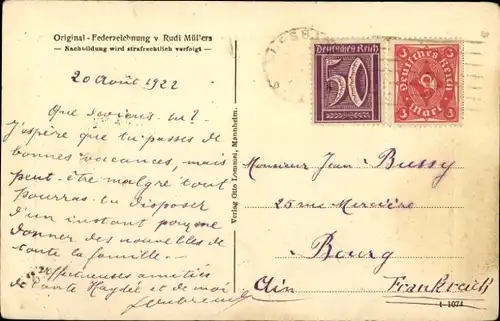 Original - Federzeichnung v Rudi Müllers
— Nachbildung wird strafrechtlich verfolgt —
20 Août 1922
Que deviens-tu?
J'espère que tu passes de
bonnes vacances, mais
peut-être malgré tout
pourras-tu disposer
d'un instant pour me
donner des nouvelles de
toute la famille.
Affectueuses amitiés
de tante Haydée et de moi
Verlag Otto Lommel, Mannheim.
Deutsches Reich
50
Deutsches Reich
3 Mark 3
Monsieur Jean Bussy
25 rue Mercière
Bourg
Ain Frankreich
1-1074